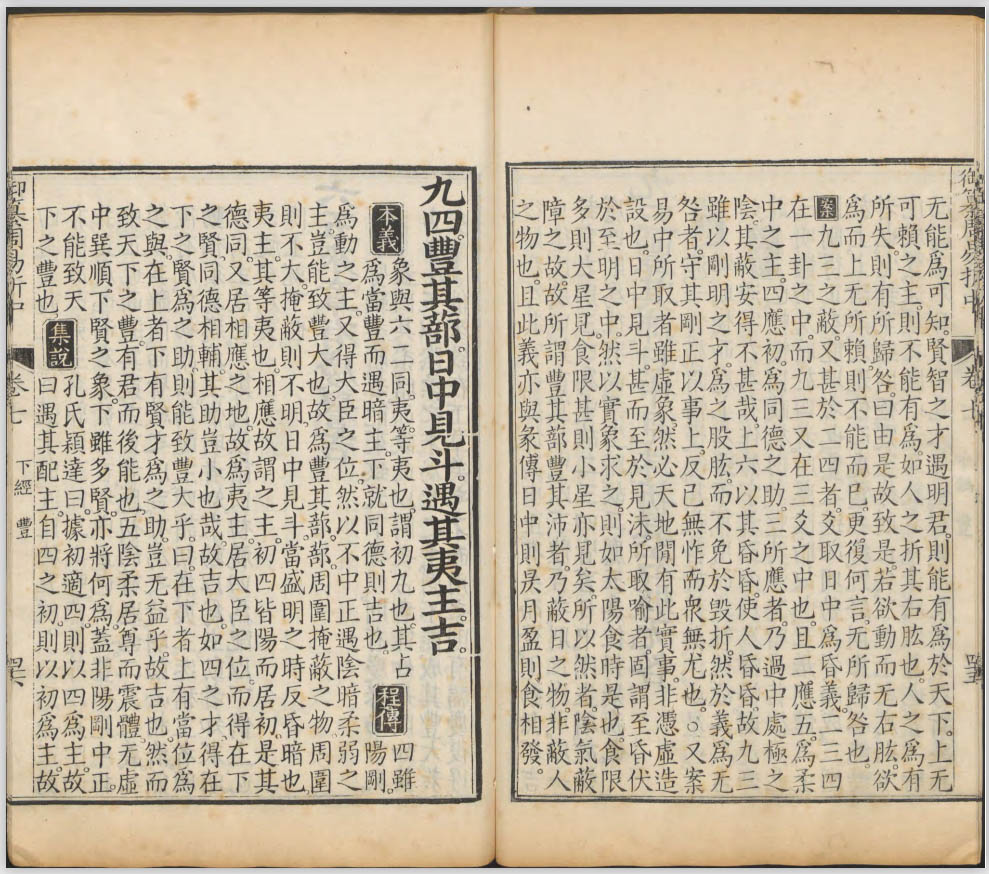 御纂周易折中
卷七
无能爲可知賢智之才遇明君則能有爲於天下上无
可賴之主則不能有爲如人之折其右肱也人之爲有
所失則有所歸咎曰由是故致是若欲動而无右肱欲
爲而上无所賴則不能而已更復何言无所歸咎也
案九三之蔽又甚於二四者爻取日中爲昏義二三四
在一卦之中而九三又在三爻之中也且二應五爲柔
中之主四應初爲同德之助三所應者乃過中處極之
陰其蔽安得不甚哉上六以其昏昏使人昏昏故九三
雖以剛明之才爲之股肱而不免於毁折然於義爲无
咎者守其剛正以事上反已無怍而衆無尤也○又案
易中所取者雖虛象然必天地閒有此實事非憑虛造
設也日中見斗甚而至於見沬所取喻者固謂至昏伏
於至明之中然以實象求之則如太陽食時是也食限
多則大星見食限甚則小星亦見矣所以然者陰氣蔽
障之故故所謂豐其蔀豐其沛者乃蔽日之物非蔽人
之物也且此義亦與彖傳日中則昃月盈則食相發
九四豐其蔀日中見斗遇其夷主吉
本義 象與六二同夷等夷也謂初九也其占
爲當豐而遇暗主下就同德則吉也 程傳 四雖陽剛
爲動之主又得大臣之位然以不中正遇陰暗柔弱之
主豈能致豐大也故爲豐其蔀蔀周圍掩蔽之物周圍
則不大掩蔽則不明日中見斗當盛明之時反昏暗也
夷主其等夷也相應故謂之主初四皆陽而居初是其
德同又居相應之地故爲夷主居大臣之位而得在下
之賢同德相輔其助豈小也哉故吉也如四之才得在
下之賢爲之助則能致豐大乎曰在下者上有當位爲
之與在上者下有賢才爲之助豈无益乎故吉也然而
致天下之豐有君而後能也五陰柔居尊而震體无虛
中巽順下賢之象下雖多賢亦將何爲蓋非陽剛中正
不能致天下之豐也 集說 孔氏穎達曰據初適四則以四爲主故
曰遇其配主自四之初則以初爲主故
御纂周易折中
卷七
下經 豐